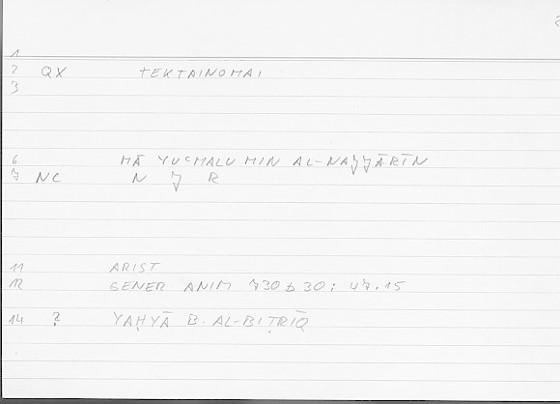 1
2 QX TEKTAINOMAI
3
6 MĀ YUCMALU MIN AL-NAJJĀRĪN
7 NC N J R
11 ARIST
12 GENER ANIM 730 b 30; 47.15
14 ? YAḤYĀ B. AL-BIṬRĪQ